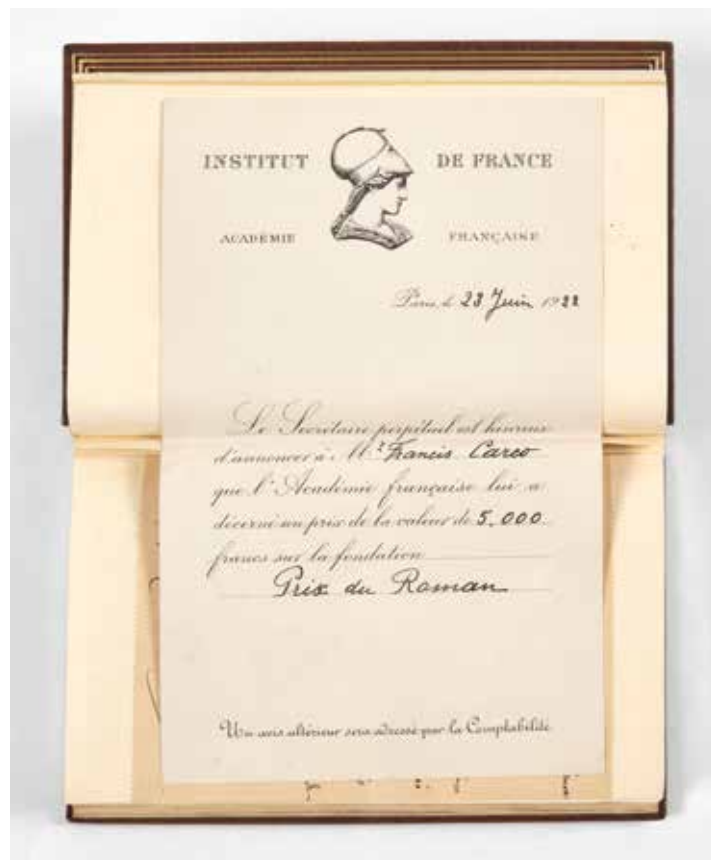 INSTITUT DE FRANCE
ACADÉMIE FRANÇAISE
Paris, le 23 Juin 1922
Le Secrétaire perpétuel est heureux
d'annoncer à Mr. Francis Carco
que l'Académie française lui a
décerné un prix de la valeur de 5.000
francs sur la fondation
Prix du Roman
Un avis ultérieur sera adressé par la Comptabilité